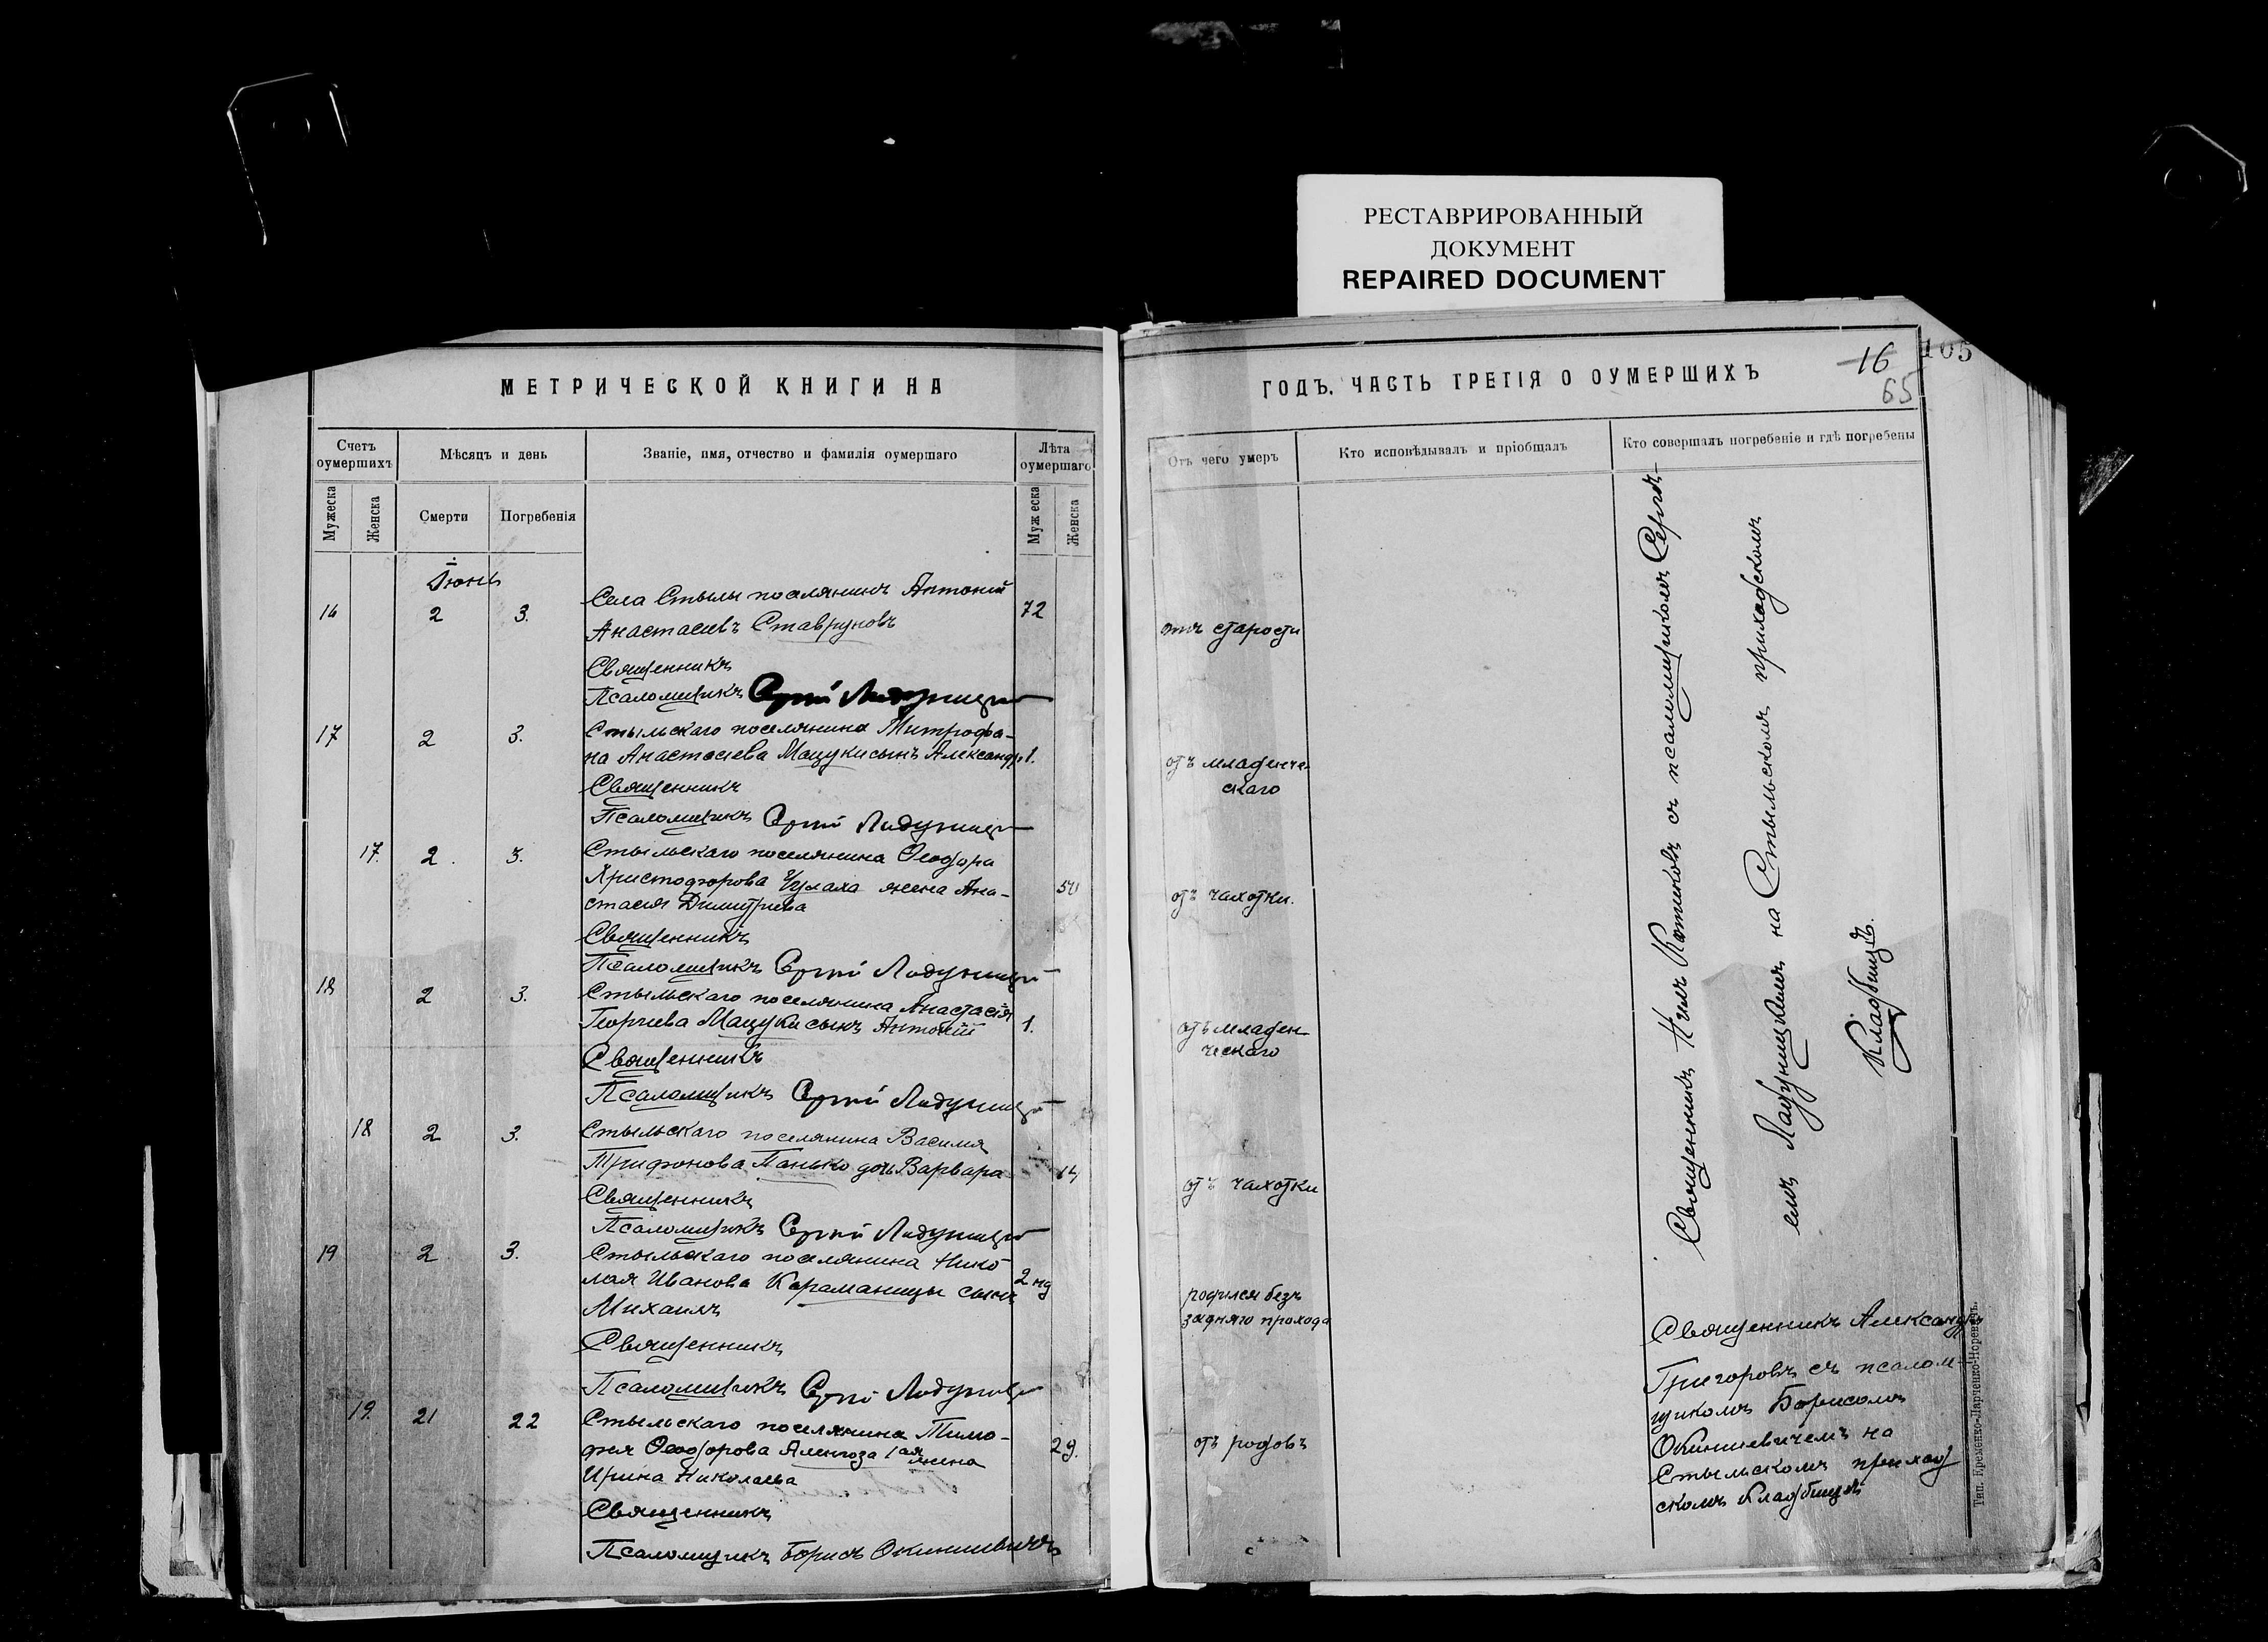 РЕСТАВРИРОВАННЫЙ
ДОКУМЕНТ
REPAIRED DOCUMENT
МЕТРИЧЕСКОЙ КНИГИ НА
Счетъ оумершихъ
Мѣсяцъ и день
Званіе, имя, отчество и фамилія оумершаго
Лѣта оумершаго
Мужеска
Женска
Смерти
Погребенія
Мужеска
Женска
Іюнь
16 2 3. Села Стылы поселянинъ Антоній 72
Анастасіевъ Ставруновъ
Священникъ
Псаломщикъ Сергій Ладуницкій
17 2 3. Стыльскаго поселянина Митрофа-
на Анастасіева Мацуки сынъ Александръ 1.
Священникъ
Псаломщикъ Сергій Ладуницкій
17. 2. 3. Стыльскаго поселянина Ѳеодора
Христофорова Чулаха жена Ана-
стасія Димитріева
Священникъ
Псаломщикъ Сергій Ладуницкій
18 2 3. Стыльскаго поселянина Анастасія
Георгіева Мацуки сынъ Антоній 1.
Священникъ
Псаломщикъ Сергій Ладуницкій
18 2 3. Стыльскаго поселянина Василія
Трифонова Панько дочь Варвара
Священникъ
Псаломщикъ Сергій Ладуницкій
19 2 3. Стыльскаго поселянина Нико
лая Иванова Караманицы сынъ 2 нд
Михаилъ
Священникъ
Псаломщикъ Сергій Ладуницкій
19. 21 22 Стыльскаго поселянина Тимо-
фея Ѳеодорова Аленгоза 1ая жена 29.
Ирина Николаева
Священникъ
Псаломщикъ Борисъ Окиншевичъ
ГОДЪ. ЧАСТЬ ТРЕТІЯ О ОУМЕРШИХЪ
16
105
65
Отъ чего умеръ
Кто исповѣдывалъ и пріобщалъ
Кто совершалъ погребеніе и гдѣ погребены
отъ старости
отъ младенче-
скаго
отъ чахотки.
отъ младен
ческаго
отъ чахотки
родился безъ
задняго прохода
отъ родовъ
Священникъ Нилъ Котиковъ съ псаломщикомъ Сергѣ-
емъ Ладуницкимъ на Стыльскомъ приходскомъ
кладбищѣ.
Священникъ Александръ
Григоровъ съ псалом-
щикомъ Борисомъ
Окиншевичемъ на
Стыльскомъ приход
скомъ кладбищѣ
Тип. Еременко-Ларченко-Норевецъ.